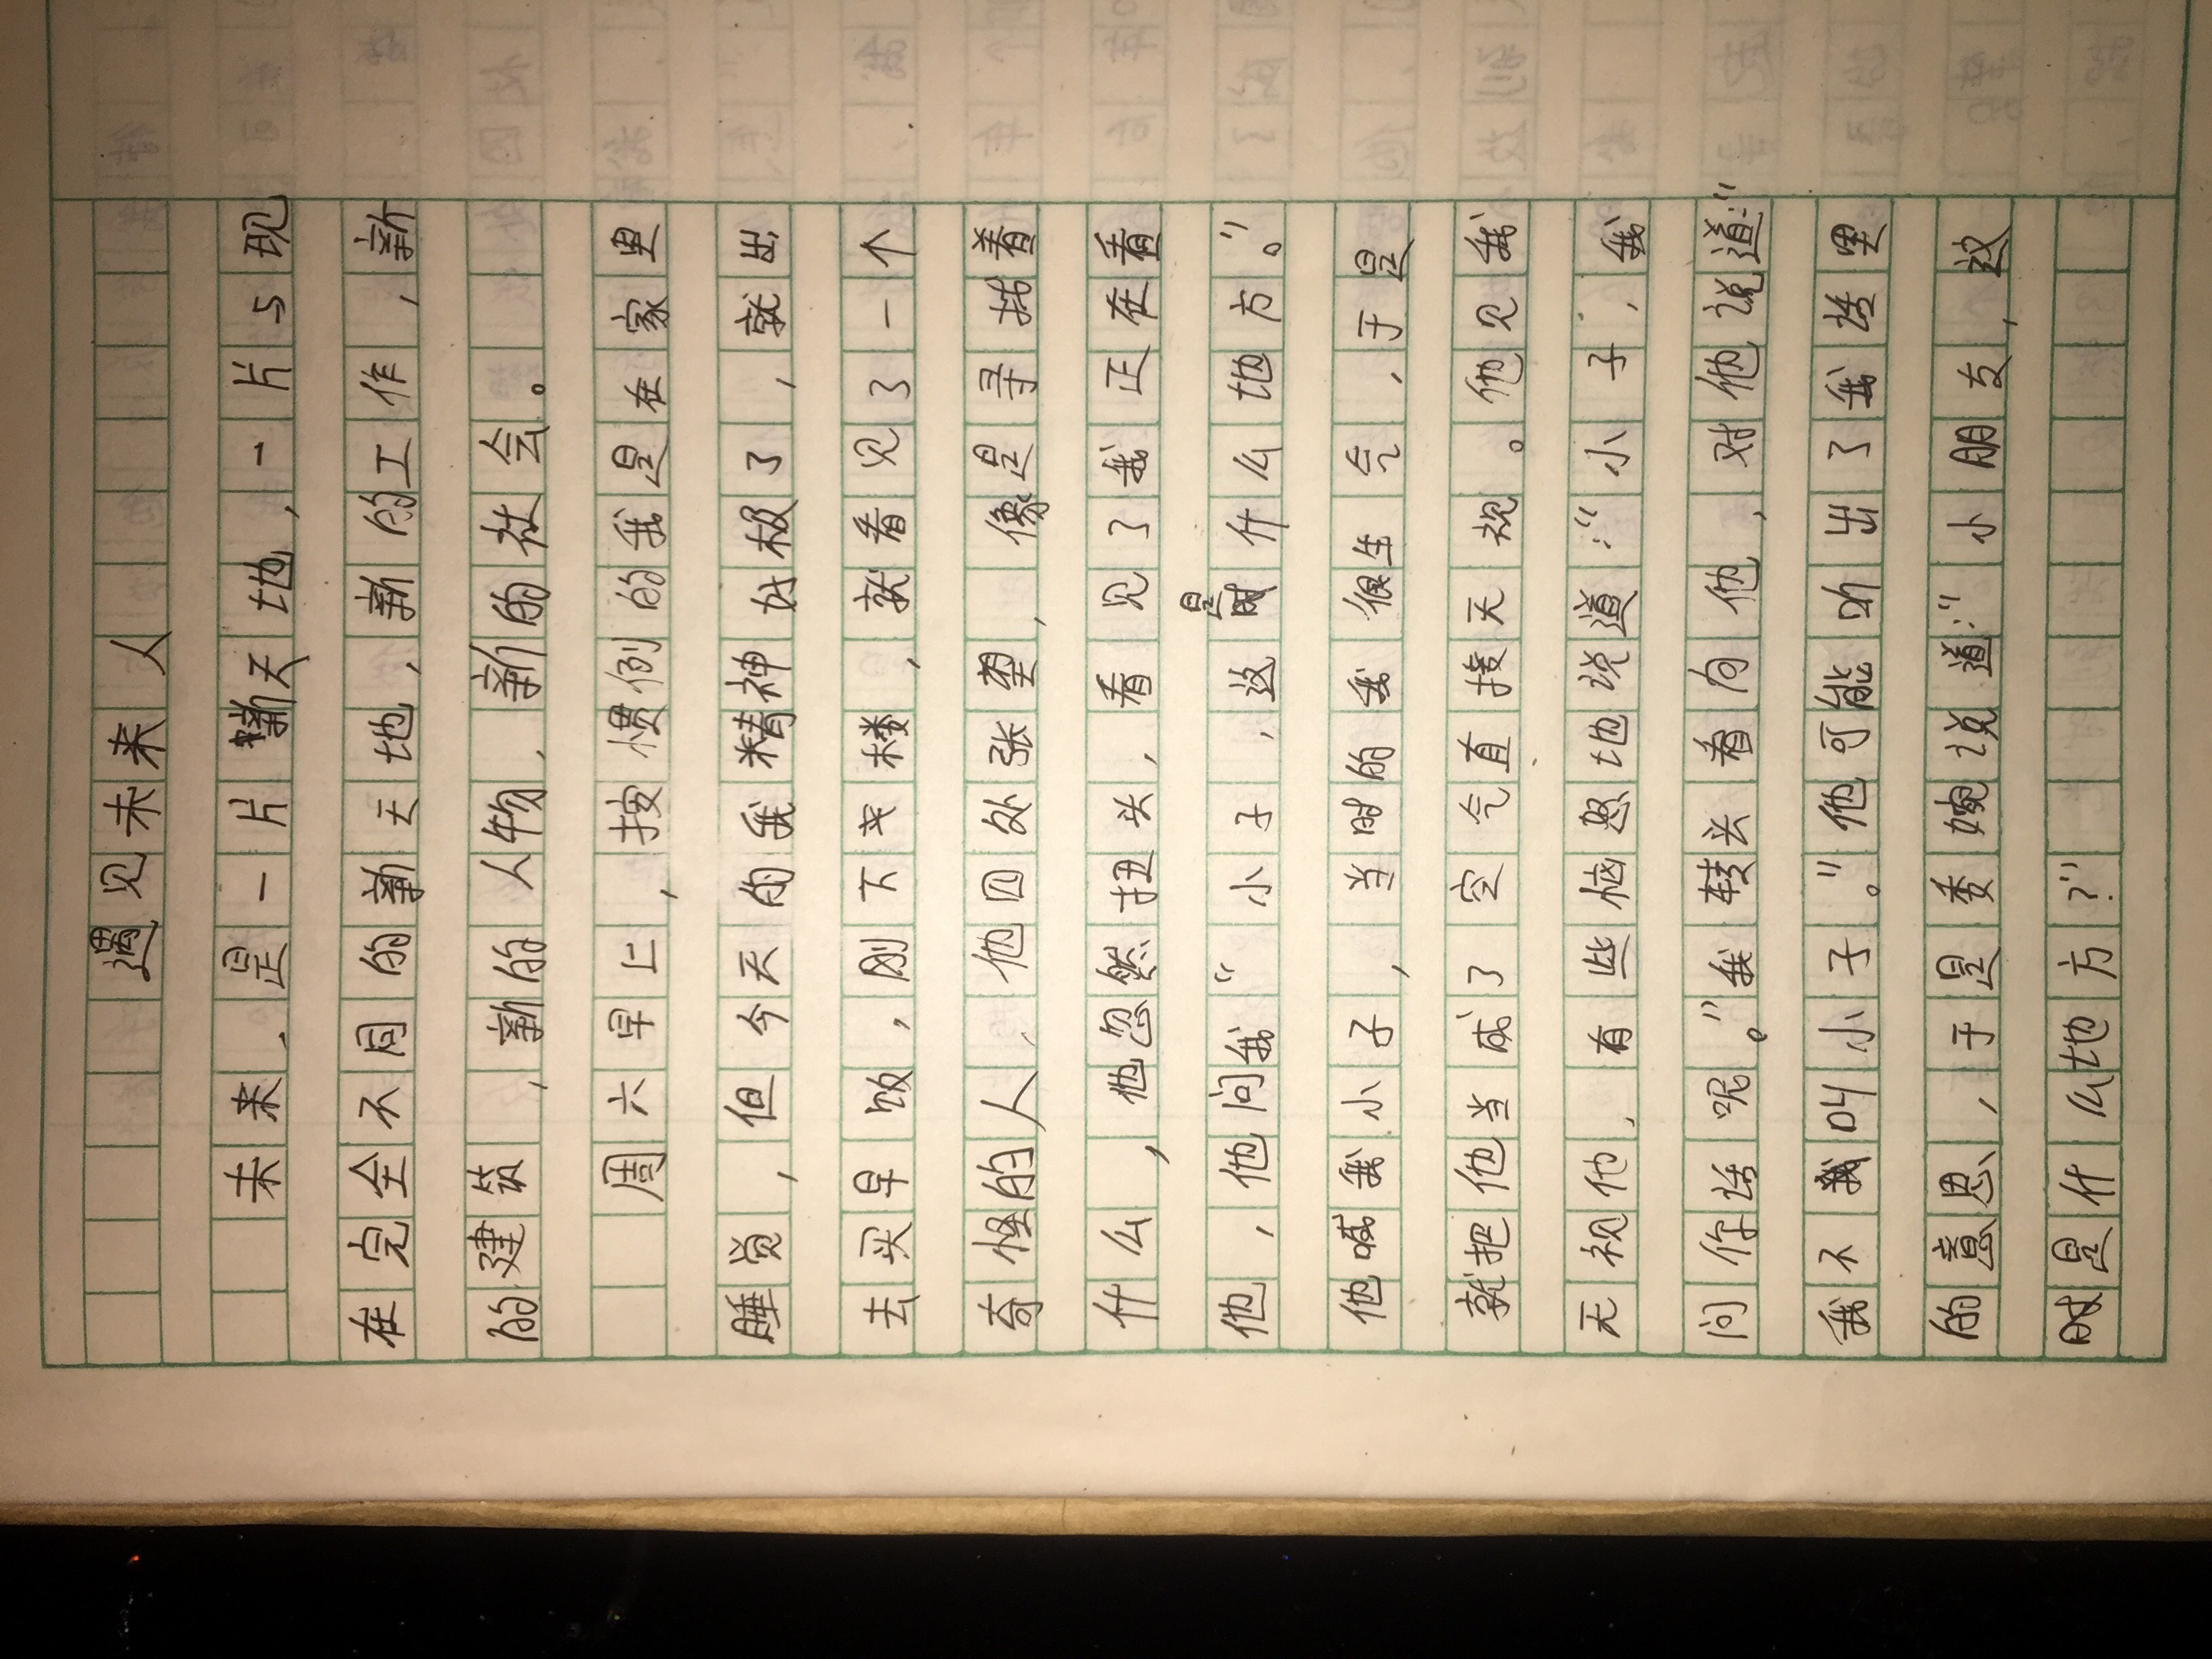 遇见未来人
未来，是一片新天地，一片与现
在完全不同的新天地，新的工作，新
的建筑，新的人物，新的社会。
周六早上，按惯例的我是在家里
睡觉，但今天的我精神好极了，就出
去买早饭，刚下楼，就看见了一个
奇怪的人，他四处张望，像是寻找着
什么，他忽然扭头，看见了我正在看
他，他问我“小子，这是什么地方。”
他喊我小子，当时的我很生气，于是
就把他当成了空气直接无视。他见我
无视他，有些恼怒地说道：“小子，我
问你话呢。”我转头看向他，对他说道：“
我不叫小子。”他可能听出了我话里
的意思，于是委婉说道：“小朋友，这
时是什么地方？”